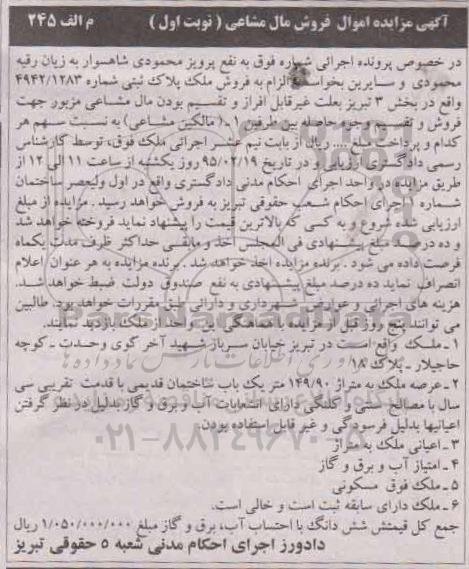 آگهی مزایده اموال فروش مال مشاعی ( نوبت اول ) م الف ۲۴۵
در خصوص پرونده اجرائی شماره فوق به نفع پرویز محمودی شاهسوار به زیان رقیه
محمودی و سایرین بخواسته الزام به فروش ملک پلاک ثبتی شماره ۴۹۴۲/۱۲۸۳
واقع در بخش ۳ تبریز بعلت غیرقابل افراز و تقسیم بودن مال مشاعی مزبور جهت
فروش و تقسیم وجوه حاصله بین طرفین ۱-( مالکین مشاعی) به نسبت سهم هر
کدام و پرداخت مبلغ .... ریال از بابت نیم عشر اجرائی ملک فوق، توسط کارشناس
رسمی دادگستری ارزیابی و در تاریخ ۹۵/۰۲/۱۹ روز یکشنبه از ساعت ۱۱ الی ۱۲ از
طریق مزایده در واحد اجرای احکام مدنی دادگستری واقع در اول ولیعصر ساختمان
شماره ۱ اجرای احکام شعب حقوقی تبریز به فروش خواهد رسید . مزایده از مبلغ
ارزیابی شده شروع و به کسی که بالاترین قیمت را پیشنهاد نماید فروخته خواهد شد
و ده درصد مبلغ پیشنهادی فی المجلس اخذ و مابقی حداکثر ظرف مدت یکماه
فرصت داده می شود . برنده مزایده اخذ خواهد شد . برنده مزایده به هر عنوان اعلام
انصراف نماید ده درصد مبلغ پیشنهادی به نفع صندوق دولت ضبط خواهد شد.
هزینه های اجرائی و عوارض شهرداری و دارائی طبق مقررات خواهد بود. طالبین
می توانند پنج روز قبل از مزایده با هماهنگی این واحد از ملک بازدید نمایند.
۱- ملک واقع است در تبریز خیابان سرباز شهید آخر کوی وحدت - کوچه
حاجیلار - پلاک ۱۸
۲- عرصه ملک به متراژ ۱۴۹/۹۰ متر یک باب ساختمان قدیمی با قدمت تقریبی سی
سال با مصالح سنتی و کلنگی دارای انشعابات آب و برق و گاز بدلیل در نظر گرفتن
اعیانیها بدلیل فرسودگی و غیر قابل استفاده بودن.
۳- اعیانی ملک به متراژ
۴- امتیاز آب و برق و گاز
۵- ملک فوق مسکونی
۶- ملک دارای سابقه ثبت است و خالی است.
جمع کل قیمتش شش دانگ با احتساب آب، برق و گاز مبلغ ۱/۰۵۰/۰۰۰/۰۰۰ ریال
دادورز اجرای احکام مدنی شعبه ۵ حقوقی تبریز
ParsNamadData
۰۲۱-۸۸۳۴۹۶۷۰-۵